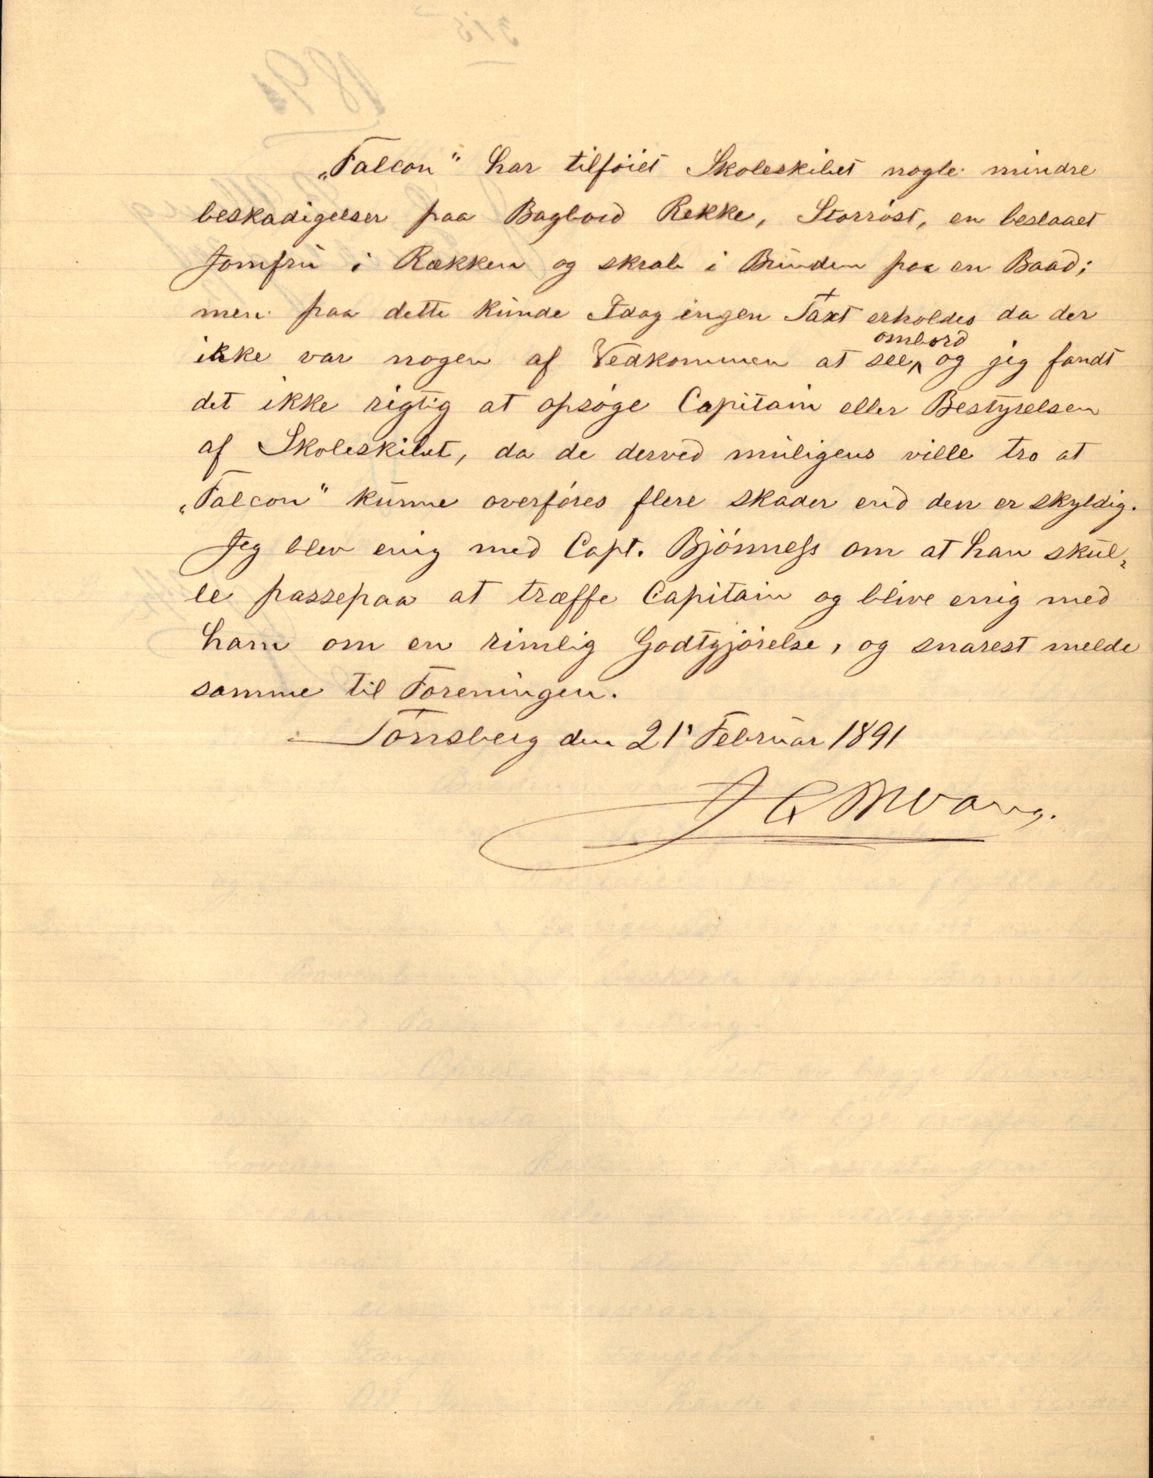 „Falcon" har tilföiet Skoleskibet nogle mindre
beskadigelser paa Bagbord Rekke, Storröst, en beslaaet
Jomfru i Rækken og skrab i Bunden paa en Baad;
men paa dette kunde Idag ingen Taxt erholdes da der
ombord
ikke var nogen af Vedkommen at see, og jeg fandt
det ikke rigtig at opsöge Capitain eller Bestyrelsen
af Skoleskibet, da de derved muligens ville tro at
„Falcon" kunne overföres flere skader end den er skyldig.
Jeg blev enig med Capt. Bjönness om at han skul-
le passepaa at træffe Capitain og blive enig med
ham om en rimlig Godtgjörelse, og snarest melde
samme til Foreningen.
Tönsberg den 21 Februar 1891